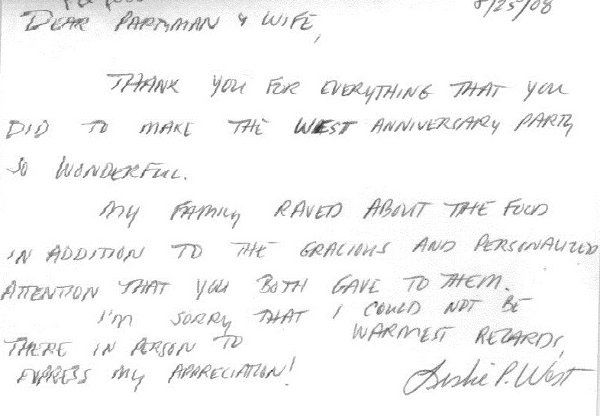 8/25/08
DEAR PARTYMAN & WIFE,
THANK YOU FOR EVERYTHING THAT YOU
DID TO MAKE THE WEST ANNIVERSARY PARTY
SO WONDERFUL.
MY FAMILY RAVED ABOUT THE FOOD
IN ADDITION TO THE GRACIOUS AND PERSONALIZED
ATTENTION THAT YOU BOTH GAVE TO THEM.
I'M SORRY THAT I COULD NOT BE
THERE IN PERSON TO
EXPRESS MY APPRECIATION!
WARMEST REGARDS,
Leslie P. West